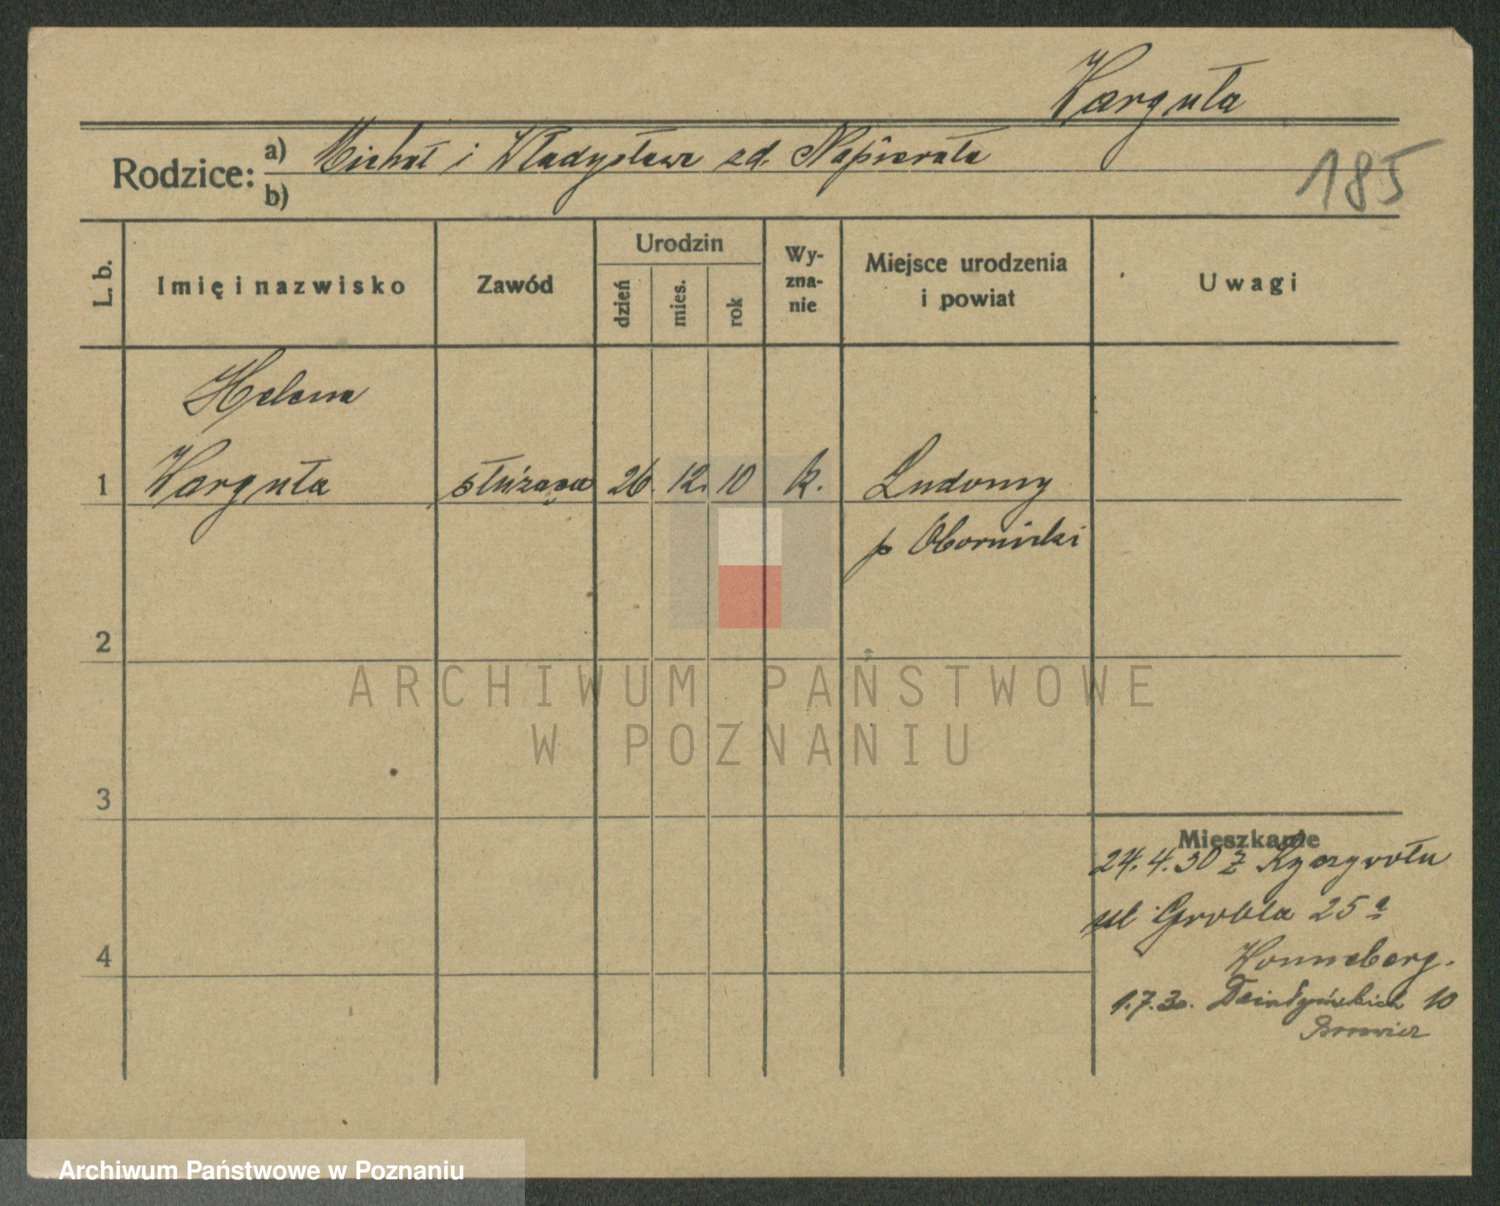 Warguła
Rodzice: a) Michał i Władysława zd. Napierała
b)
185
L. b.
Imię i nazwisko
Zawód
Urodzin
dzień
mies.
rok
Wy-
zna-
nie
Miejsce urodzenia
i powiat
Uwagi
Helena
1 Warguła służąca 26. 12. 10 k. Ludomy
p Obornicki
2
3
4
Mieszkanie
24.4.30 z Ryczywołu
ul Grobla 25 a
1.7.30. Działyńskich 10
ARCHIWUM PAŃSTWOWE
W POZNANIU
Archiwum Państwowe w Poznaniu